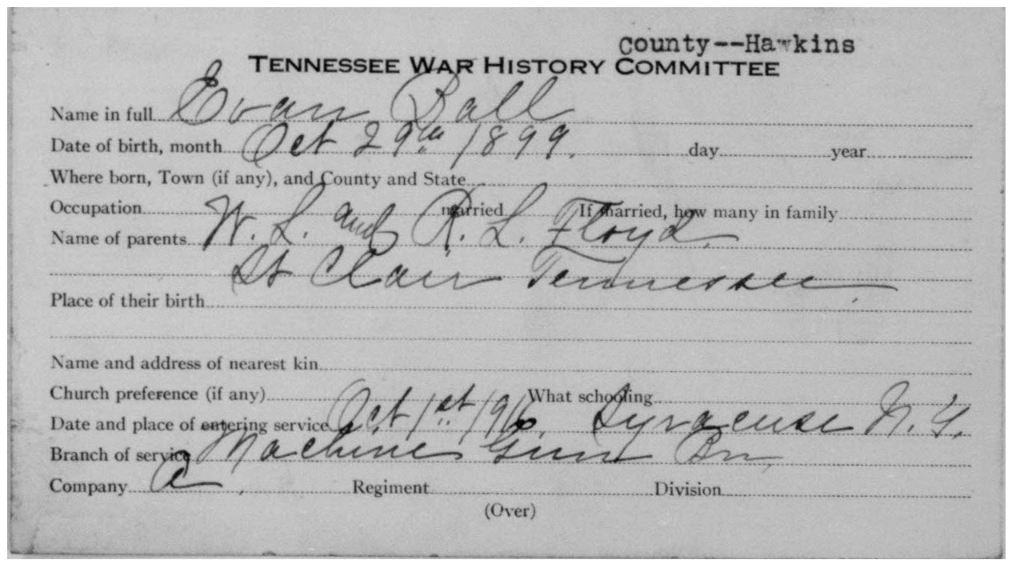 County--Hawkins
TENNESSEE WAR HISTORY COMMITTEE
Name in full Evan Ball
Date of birth, month Oct 29th 1899. day year
Where born, Town (if any), and County and State
Occupation married If married, how many in family
Name of parents W. L. and R. L. Floyd.
St Clair Tennessee.
Place of their birth
Name and address of nearest kin
Church preference (if any) What schooling
Date and place of entering service Oct 1st 1916. Syracuse N. Y.
Branch of service Machine Gun Bn,
Company C. Regiment Division
(Over)